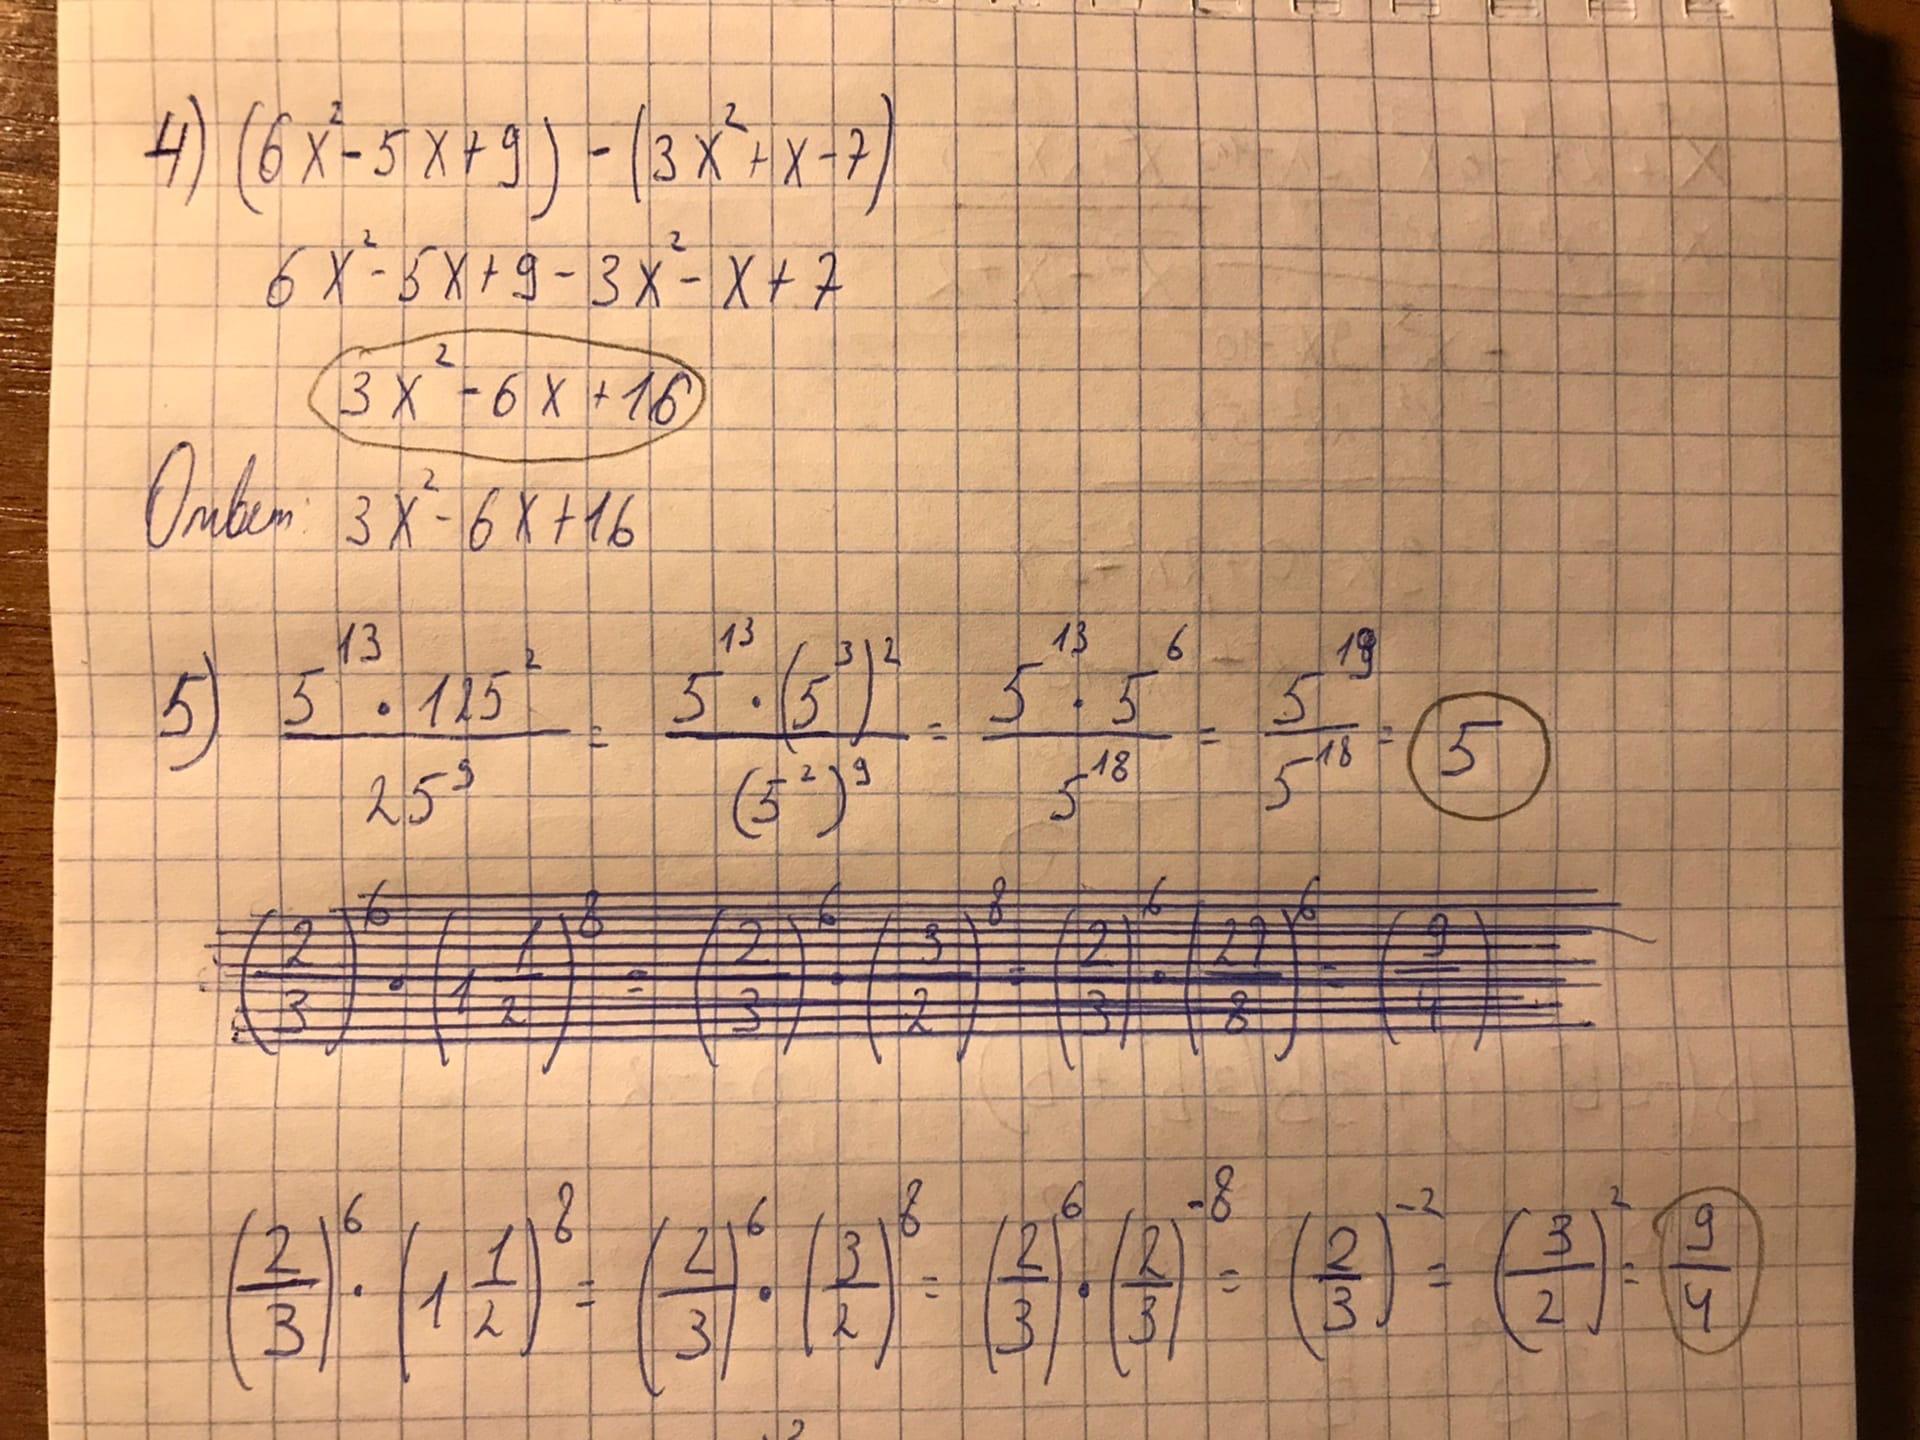 4) (6x²-5x+9)-(3x²+x-7)
6x²-5x+9-3x²-x+7
3x²-6x+16
Ответ: 3x²-6x+16
5) \frac{5^{13} \cdot 125^2}{25^9} = \frac{5^{13} \cdot (5^3)^2}{(5^2)^9} = \frac{5^{13} \cdot 5^6}{5^{18}} = \frac{5^{19}}{5^{18}} = 5
(\frac{2}{3})^6 \cdot (1\frac{1}{2})^8 = (\frac{2}{3})^6 \cdot (\frac{3}{2})^8 = (\frac{2}{3})^6 \cdot (\frac{27}{8})^6 = (\frac{9}{4})
(\frac{2}{3})^6 \cdot (1\frac{1}{2})^8 = (\frac{2}{3})^6 \cdot (\frac{3}{2})^8 = (\frac{2}{3})^6 \cdot (\frac{2}{3})^{-8} = (\frac{2}{3})^{-2} = (\frac{3}{2})^2 = \frac{9}{4}